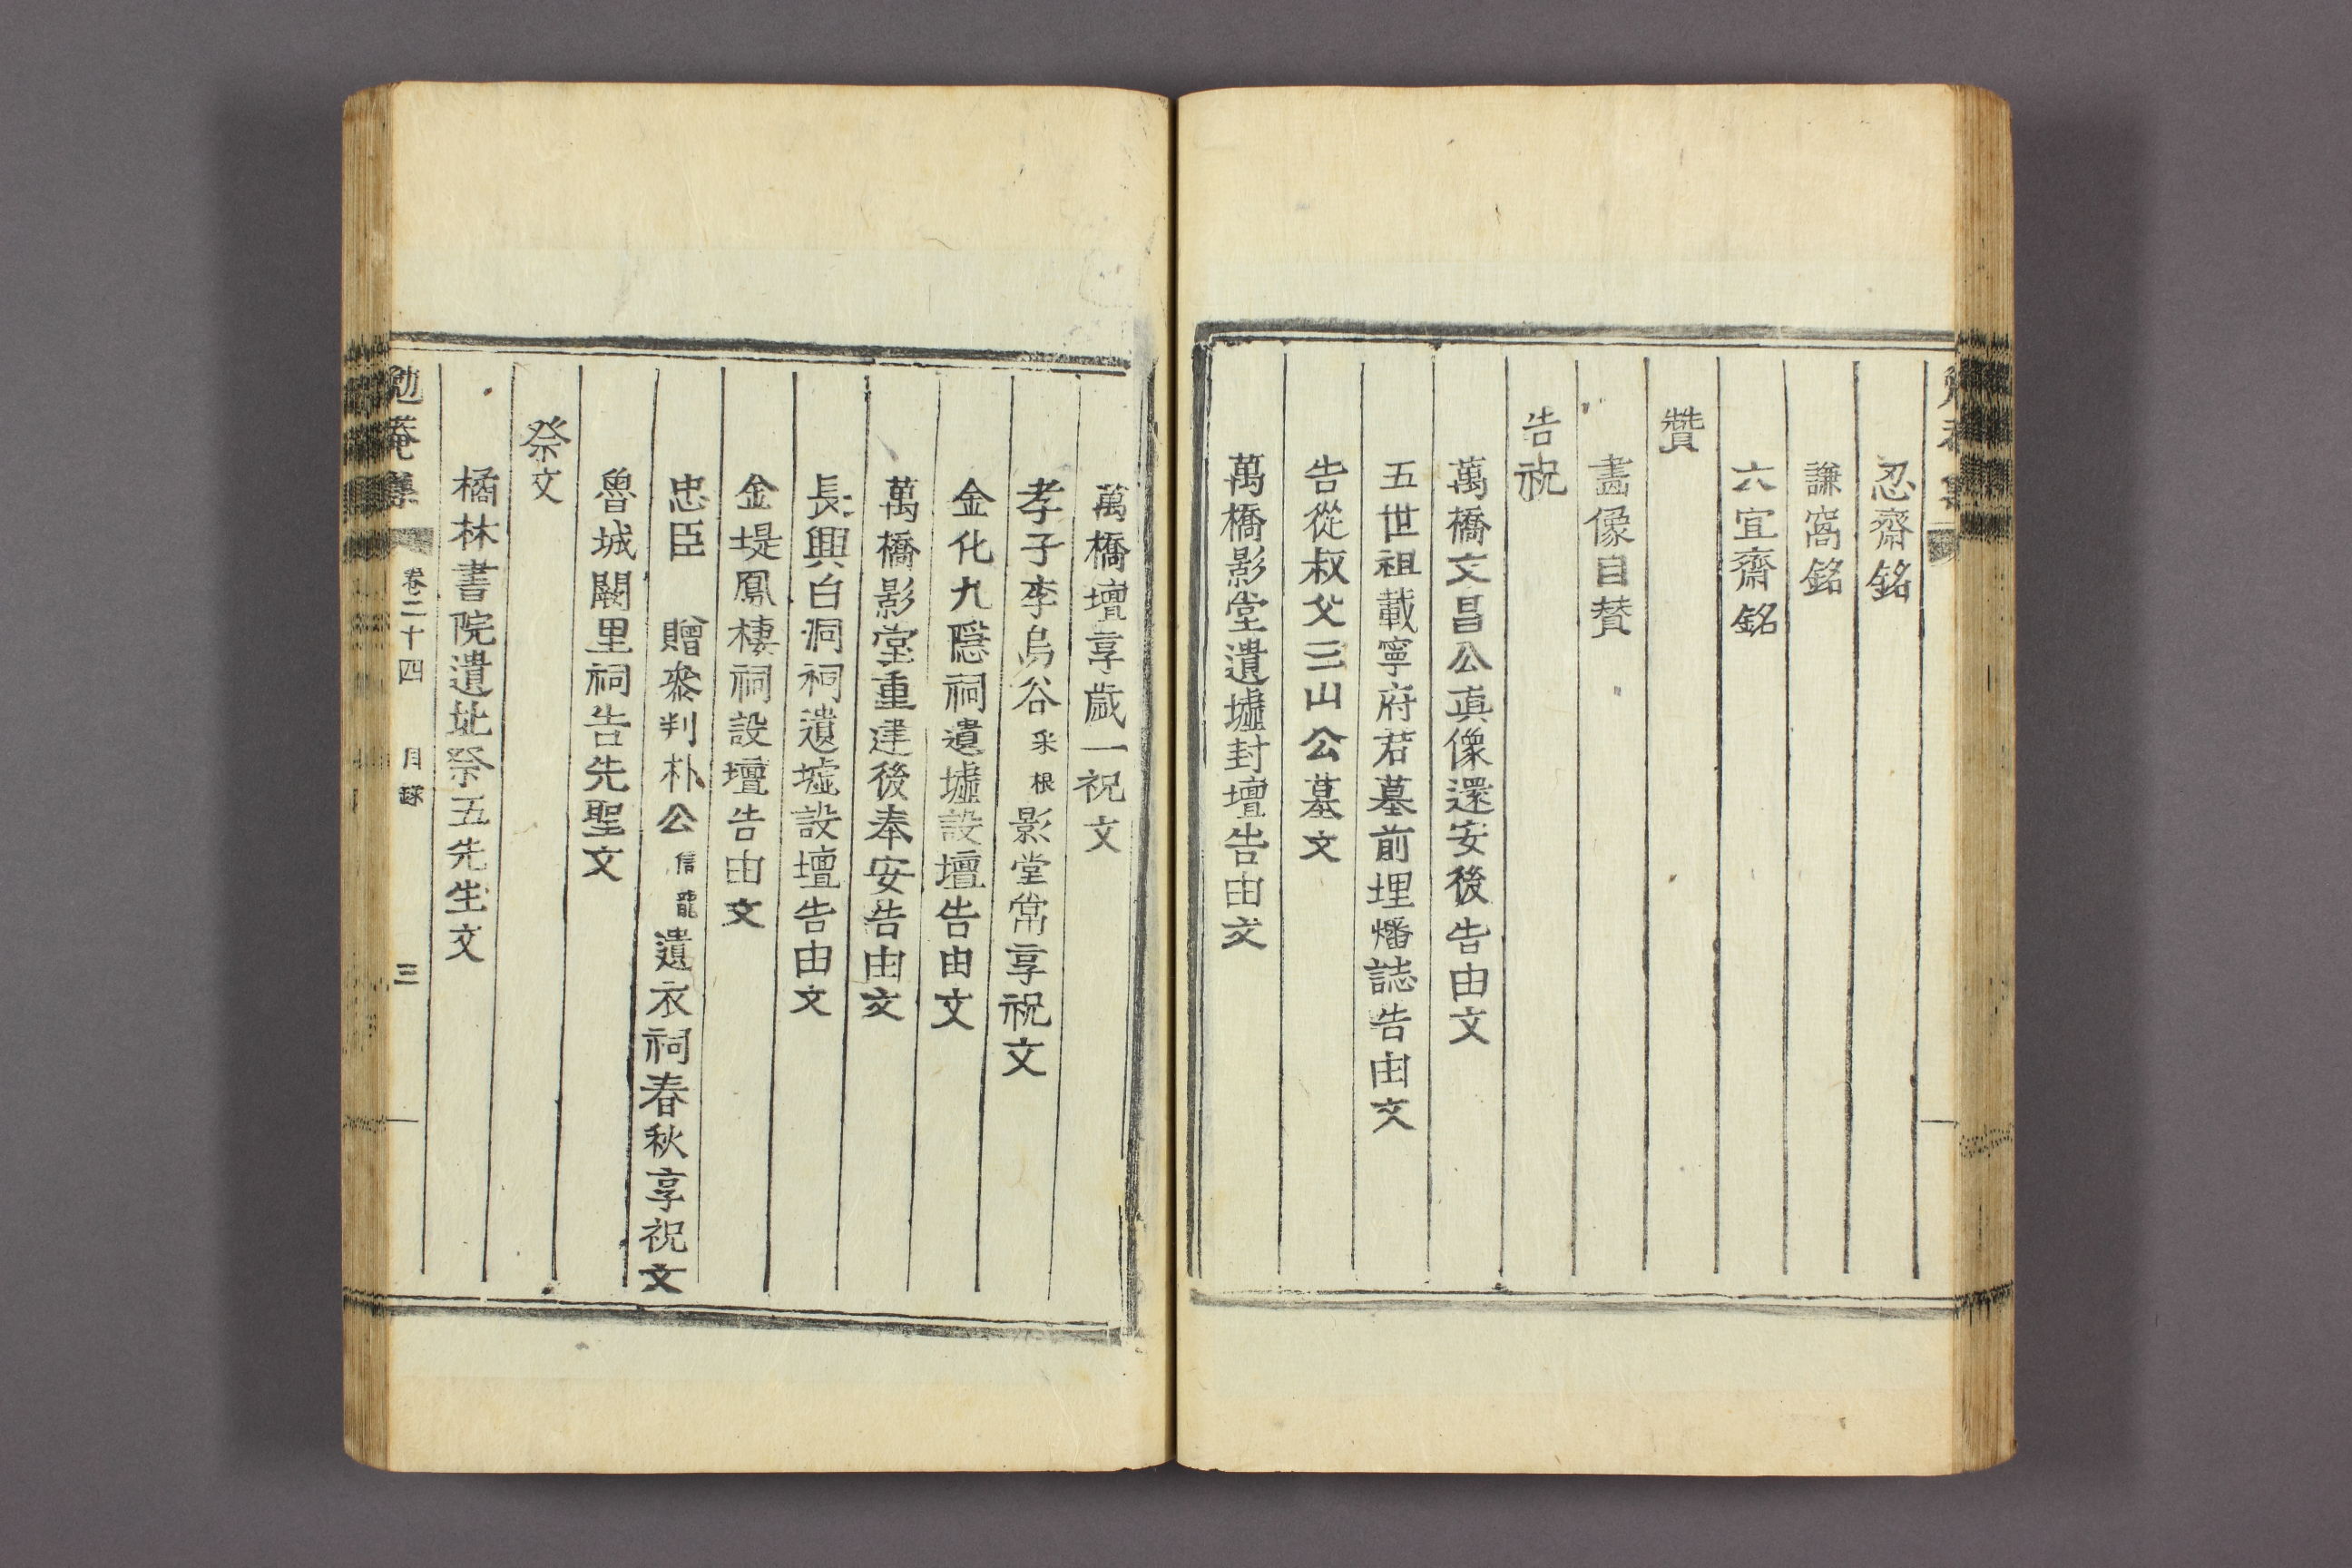 忍齋銘
謙窩銘
六宜齋銘
贊
畵像自贊
告祝
萬橋文昌公眞像還安後告由文
五世祖載寧府君墓前埋燔誌告由文
告從叔父三山公墓文
萬橋影堂遺墟封壇告由文
萬橋壇享歲一祝文
孝子李烏谷 采根 影堂常享祝文
金化九隱祠遺墟設壇告由文
萬橋影堂重建後奉安告由文
長興白洞祠遺墟設壇告由文
金堤鳳棲祠設壇告由文
忠臣 贈參判朴公 信龍 遺衣祠春秋享祝文
魯城闕里祠告先聖文
祭文
橘林書院遺址祭五先生文
勉菴集 卷二十四 目錄 三